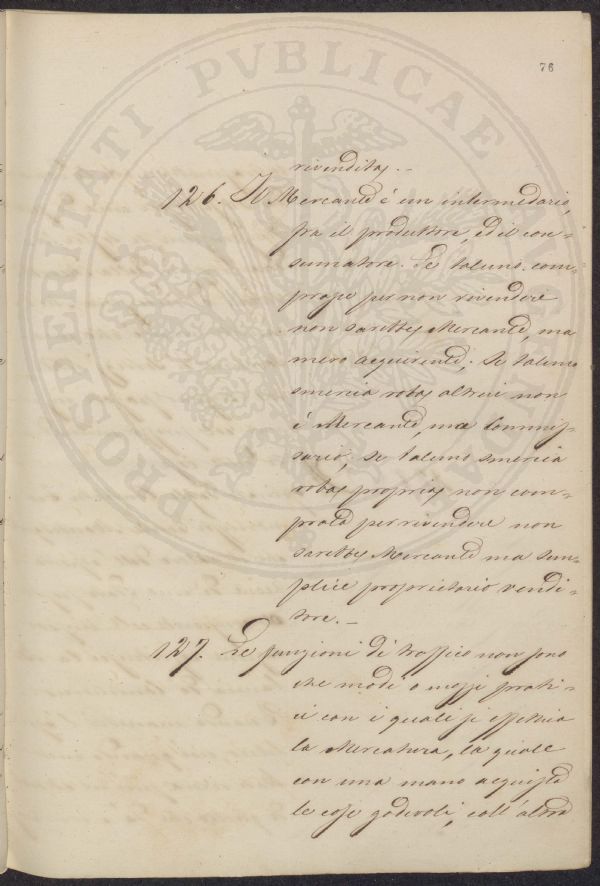 76
rivendita. -
126. Il Mercante è un intermediario,
fra il produttore, ed il con-
sumatore. Se taluno com-
prasse per non rivendere
non sarebbe Mercante, ma
mero acquirente; se taluno
smercia roba altrui non
è Mercante, ma Commis-
sario; se taluno smercia
roba propria non com-
prata per rivendere non
sarebbe Mercante ma sem-
plice proprietario vendi-
tore. -
127. Le funzioni di traffico non sono
che modi o mezzi prati-
ci con i quali si effettua
la Mercatura, la quale
con una mano acquista
le cose godevoli, coll'altra
PROSPERITATI PVBLICAE